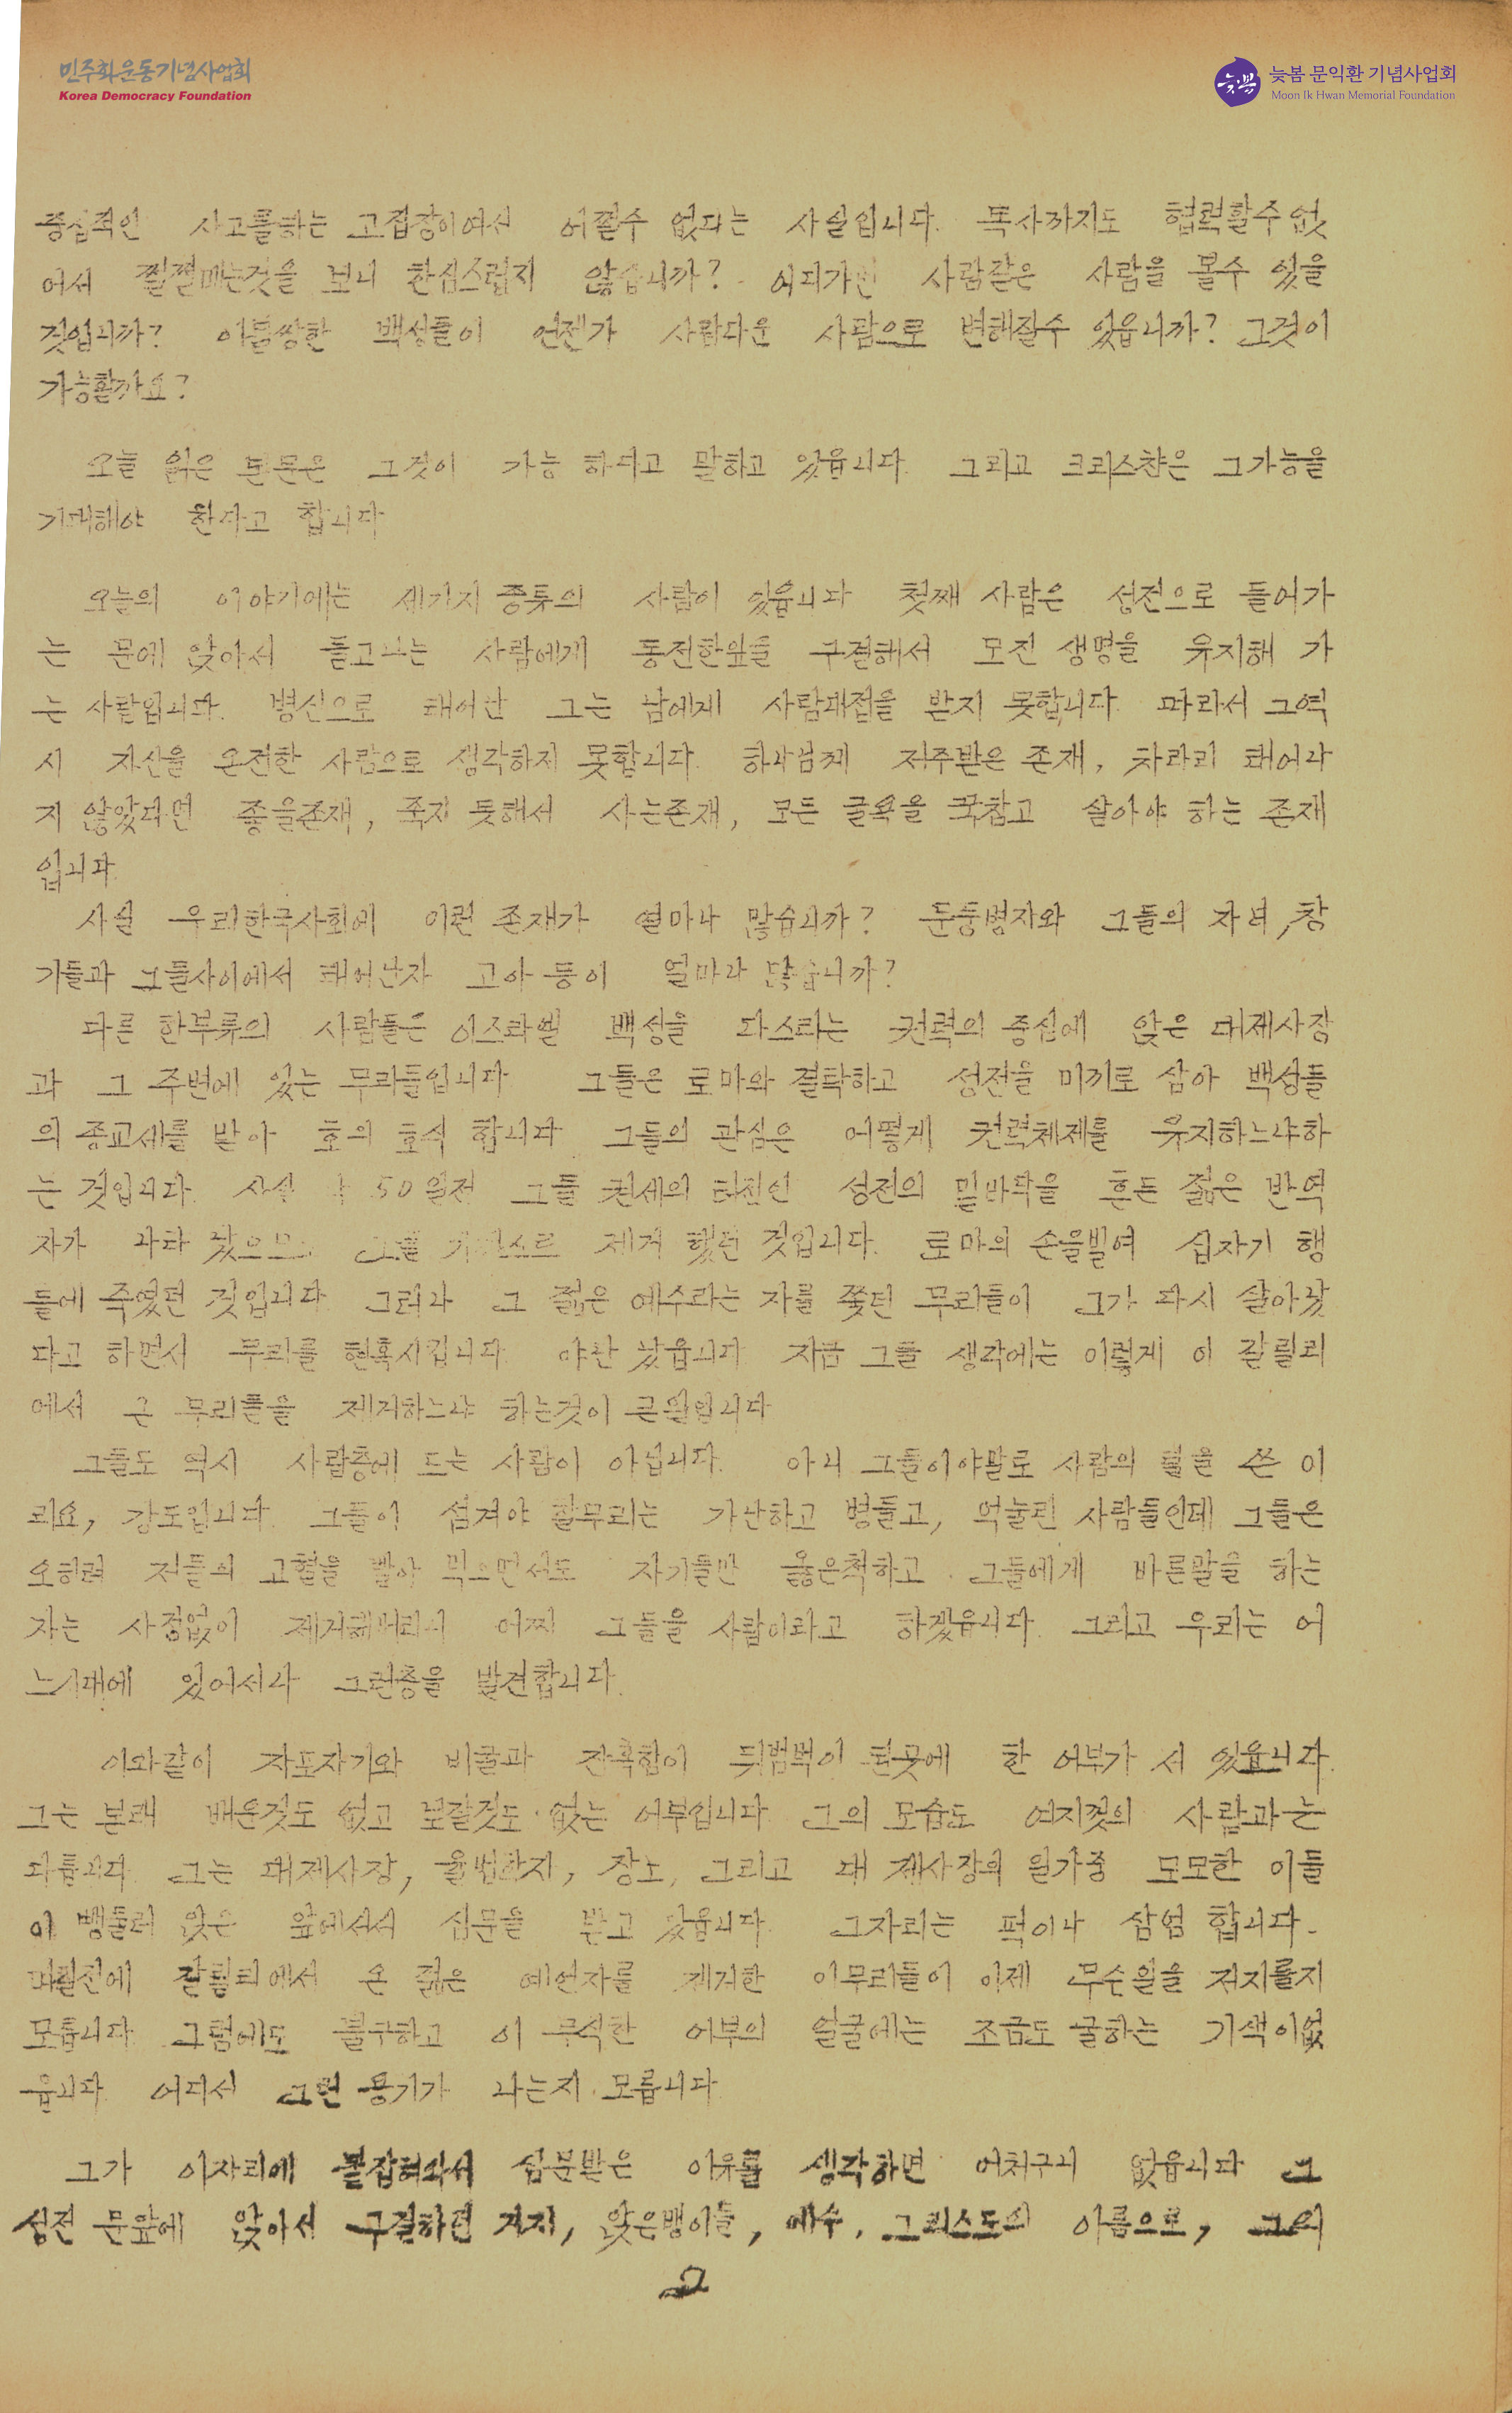 민주화운동기념사업회
Korea Democracy Foundation
늦봄
늦봄 문익환 기념사업회
Moon Ik Hwan Memorial Foundation
중심적인 사고를하는 고집장이여서 어쩔수 없다는 사실입니다. 목사까지도 협력할수 없
어서 쩔쩔매는것을 보니 한심스럽지 않습니까? 어디가면 사람같은 사람을 볼수 있을
것입니까? 이불쌍한 백성들이 언젠가 사람다운 사람으로 변해질수 있읍니까? 그것이
가능할까요?
오늘 읽은 본문은 그것이 가능 하다고 말하고 있읍니다. 그리고 크리스챤은 그가능을
기대해야 한다고 합니다
오늘의 이야기에는 세가지 종류의 사람이 있읍니다 첫째 사람은 성전으로 들어가
는 문에 앉아서 들고나는 사람에게 동전한잎을 구걸해서 모진 생명을 유지해 가
는 사람입니다. 병신으로 태어난 그는 남에게 사람대접을 받지 못합니다. 따라서 그역
시 자신을 온전한 사람으로 생각하지 못합니다. 하나님께 저주받은 존재, 차라리 태어나
지 않았다면 좋을존재, 죽지 못해서 사는존재, 모든 굴욕을 꾹참고 살아야 하는 존재
입니다.
사실 우리한국사회에 이런 존재가 얼마나 많습니까? 문둥병자와 그들의 자녀, 창
기들과 그들사이에서 태어난자 고아 등이 얼마나 많습니까?
다른 한부류의 사람들은 이스라엘 백성을 다스리는 권력의 중심에 앉은 대제사장
과 그 주변에 있는 무리들입니다 그들은 로마와 결탁하고 성전을 미끼로 삼아 백성들
의 종교세를 받아 호의 호식 합니다 그들의 관심은 어떻게 권력체제를 유지하느냐하
는 것입니다. 사실 50일전 그들 권세의 터전인 성전의 밑바닥을 흔든 젊은 반역
자가 나타 났으므로 그를 제거 했던 것입니다. 로마의 손을빌여 십자가 형
틀에 죽였던 것입니다 그러나 그 젊은 예수라는 자를 쫓던 무리들이 그가 다시 살아났
다고 하면서 무리를 현혹시킵니다. 야단 났읍니다 지금 그들 생각에는 이렇게 이 갈릴리
에서 온 무리들을 제거하느냐 하는것이 큰일입니다
그들도 역시 사람층에 드는 사람이 아닙니다. 아니 그들이야말로 사람의 탈을 쓴 이
리요, 강도입니다. 그들이 섬겨야 할무리는 가난하고 병들고, 억눌린 사람들인데 그들은
오히려 저들의 고혈을 빨아 먹으면서도 자기들만 옳은척하고 그들에게 바른말을 하는
자는 사정없이 제거해버리니 어찌 그들을 사람이라고 하겠읍니다. 그리고 우리는 어
느시대에 있어서나 그런층을 발견합니다.
이와같이 자포자기와 비굴과 잔혹함이 뒤범벅이 된곳에 한 어부가 서 있읍니다.
그는 본래 배운것도 없고 보잘것도 없는 어부입니다. 그의 모습도 여지껏의 사람과는
다릅니다. 그는 대제사장, 율법학자, 장노, 그리고 대 제사장의 일가중 모모한 이들
이 뺑둘러 앉은 앞에서서 심문을 받고 있읍니다. 그자리는 퍽이나 삼엄 합니다.
며칠전에 갈릴리에서 온 젊은 예언자를 제거한 이무리들이 이제 무슨일을 저지를지
모릅니다. 그럼에도 불구하고 이 무식한 어부의 얼굴에는 조금도 굴하는 기색이없
읍니다. 어디서 그런 용기가 나는지 모릅니다.
그가 이자리에 붙잡혀와서 심문받은 이유를 생각하면 어처구니 없읍니다 그
성전 문앞에 앉아서 구걸하던 거지, 앉은뱅이를, 예수, 그리스도의 이름으로, 그의
2